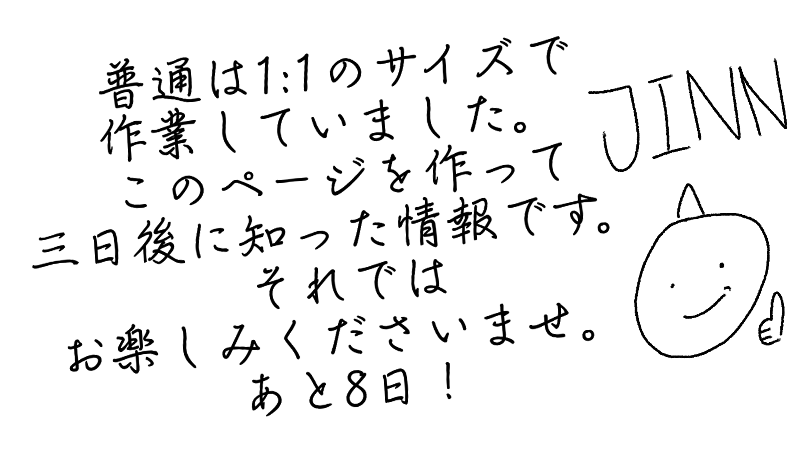 普通は1:1のサイズで
作業していました。
このページを作って
三日後に知った情報です。
それでは
お楽しみくださいませ。
あと8日!
JINN